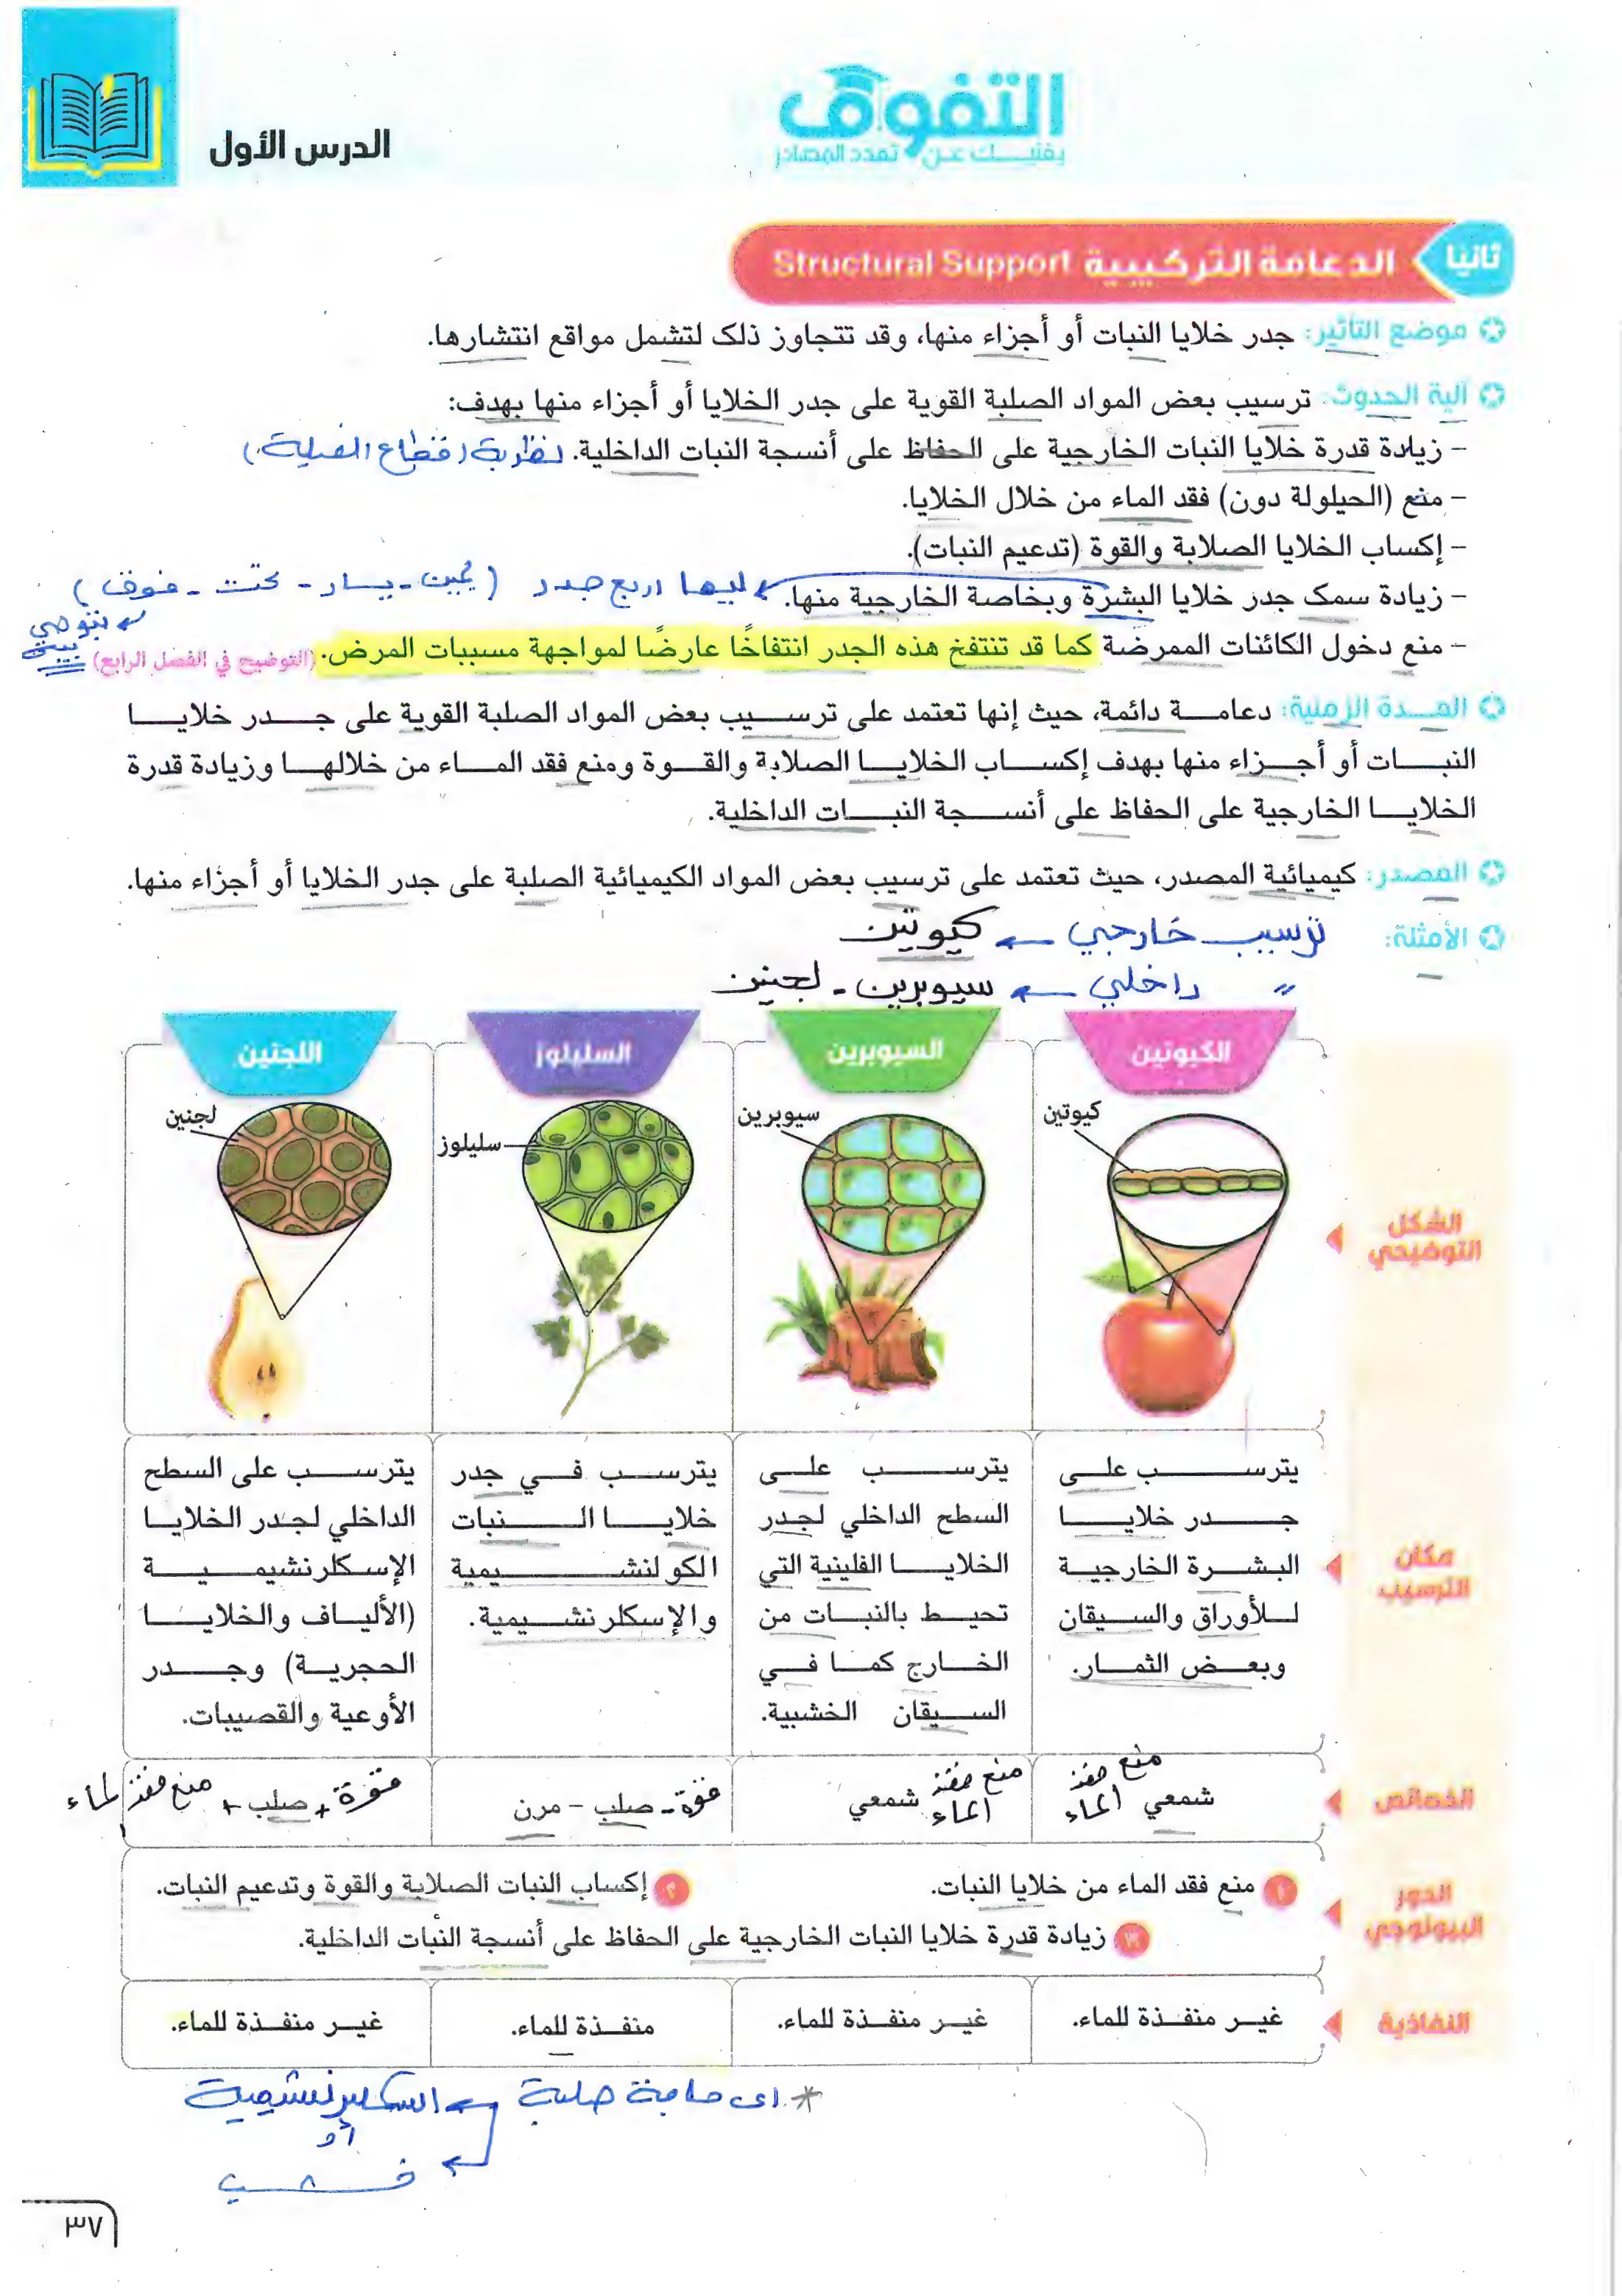 التفوق
يغنيك عن تعدد المصادر
الدرس الأول
ثانيا
الدعامة التركيبية Structural Support
موضع التأثير: جدر خلايا النبات أو أجزاء منها، وقد تتجاوز ذلك لتشمل مواقع انتشارها.
آلية الحدوث: ترسيب بعض المواد الصلبة القوية على جدر الخلايا أو أجزاء منها بهدف:
– زيادة قدرة خلايا النبات الخارجية على الحفاظ على أنسجة النبات الداخلية.
– منع (الحيلولة دون) فقد الماء من خلال الخلايا.
– إكساب الخلايا الصلابة والقوة (تدعيم النبات).
– زيادة سمك جدر خلايا البشرة وبخاصة الخارجية منها. ليها اربع جدر (يمين - يسار - تحت - فوق)
– منع دخول الكائنات الممرضة كما قد تنتفخ هذه الجدر انتفاخًا عارضًا لمواجهة مسببات المرض. (التوضيح في الفصل الرابع)
المدة الزمنية: دعامة دائمة، حيث إنها تعتمد على ترسيب بعض المواد الصلبة القوية على جدر خلايا
النبات أو أجزاء منها بهدف إكساب الخلايا الصلابة والقوة ومنع فقد الماء من خلالها وزيادة قدرة
الخلايا الخارجية على الحفاظ على أنسجة النبات الداخلية.
المصدر: كيميائية المصدر، حيث تعتمد على ترسيب بعض المواد الكيميائية الصلبة على جدر الخلايا أو أجزاء منها.
الأمثلة: ترسيب خارجي ← كيوتين
" داخلي ← سيوبرين - لجنين
الكيوتين
السيوبرين
السليلوز
اللجنين
الشكل
التوضيحي
كيوتين
سيوبرين
سليلوز
لجنين
مكان
الترسيب
يترسب على
جدر خلايا
البشرة الخارجية
للأوراق والسيقان
وبعض الثمار.
يترسب على
السطح الداخلي لجدر
الخلايا الفلينية التي
تحيط بالنبات من
الخارج كما في
السيقان الخشبية.
يترسب في جدر
خلايا النبات
الكولنشيمية
والإسكلرنشيمية.
يترسب على السطح
الداخلي لجدر الخلايا
الإسكلرنشيمية
(الألياف والخلايا
الحجرية) وجدر
الأوعية والقصيبات.
الخصائص
شمعي منع فقد الماء
شمعي منع فقد الماء
قوة - صلب – مرن
قوة + صلب + منع فقد الماء
الدور
البيولوجي
١ منع فقد الماء من خلايا النبات.
٢ إكساب النبات الصلابة والقوة وتدعيم النبات.
٣ زيادة قدرة خلايا النبات الخارجية على الحفاظ على أنسجة النبات الداخلية.
النفاذية
غير منفذة للماء.
غير منفذة للماء.
منفذة للماء.
غير منفذة للماء.
* اى حاجة صلبة ← اسكلرنشيمية
أو
← خشب
٣٧